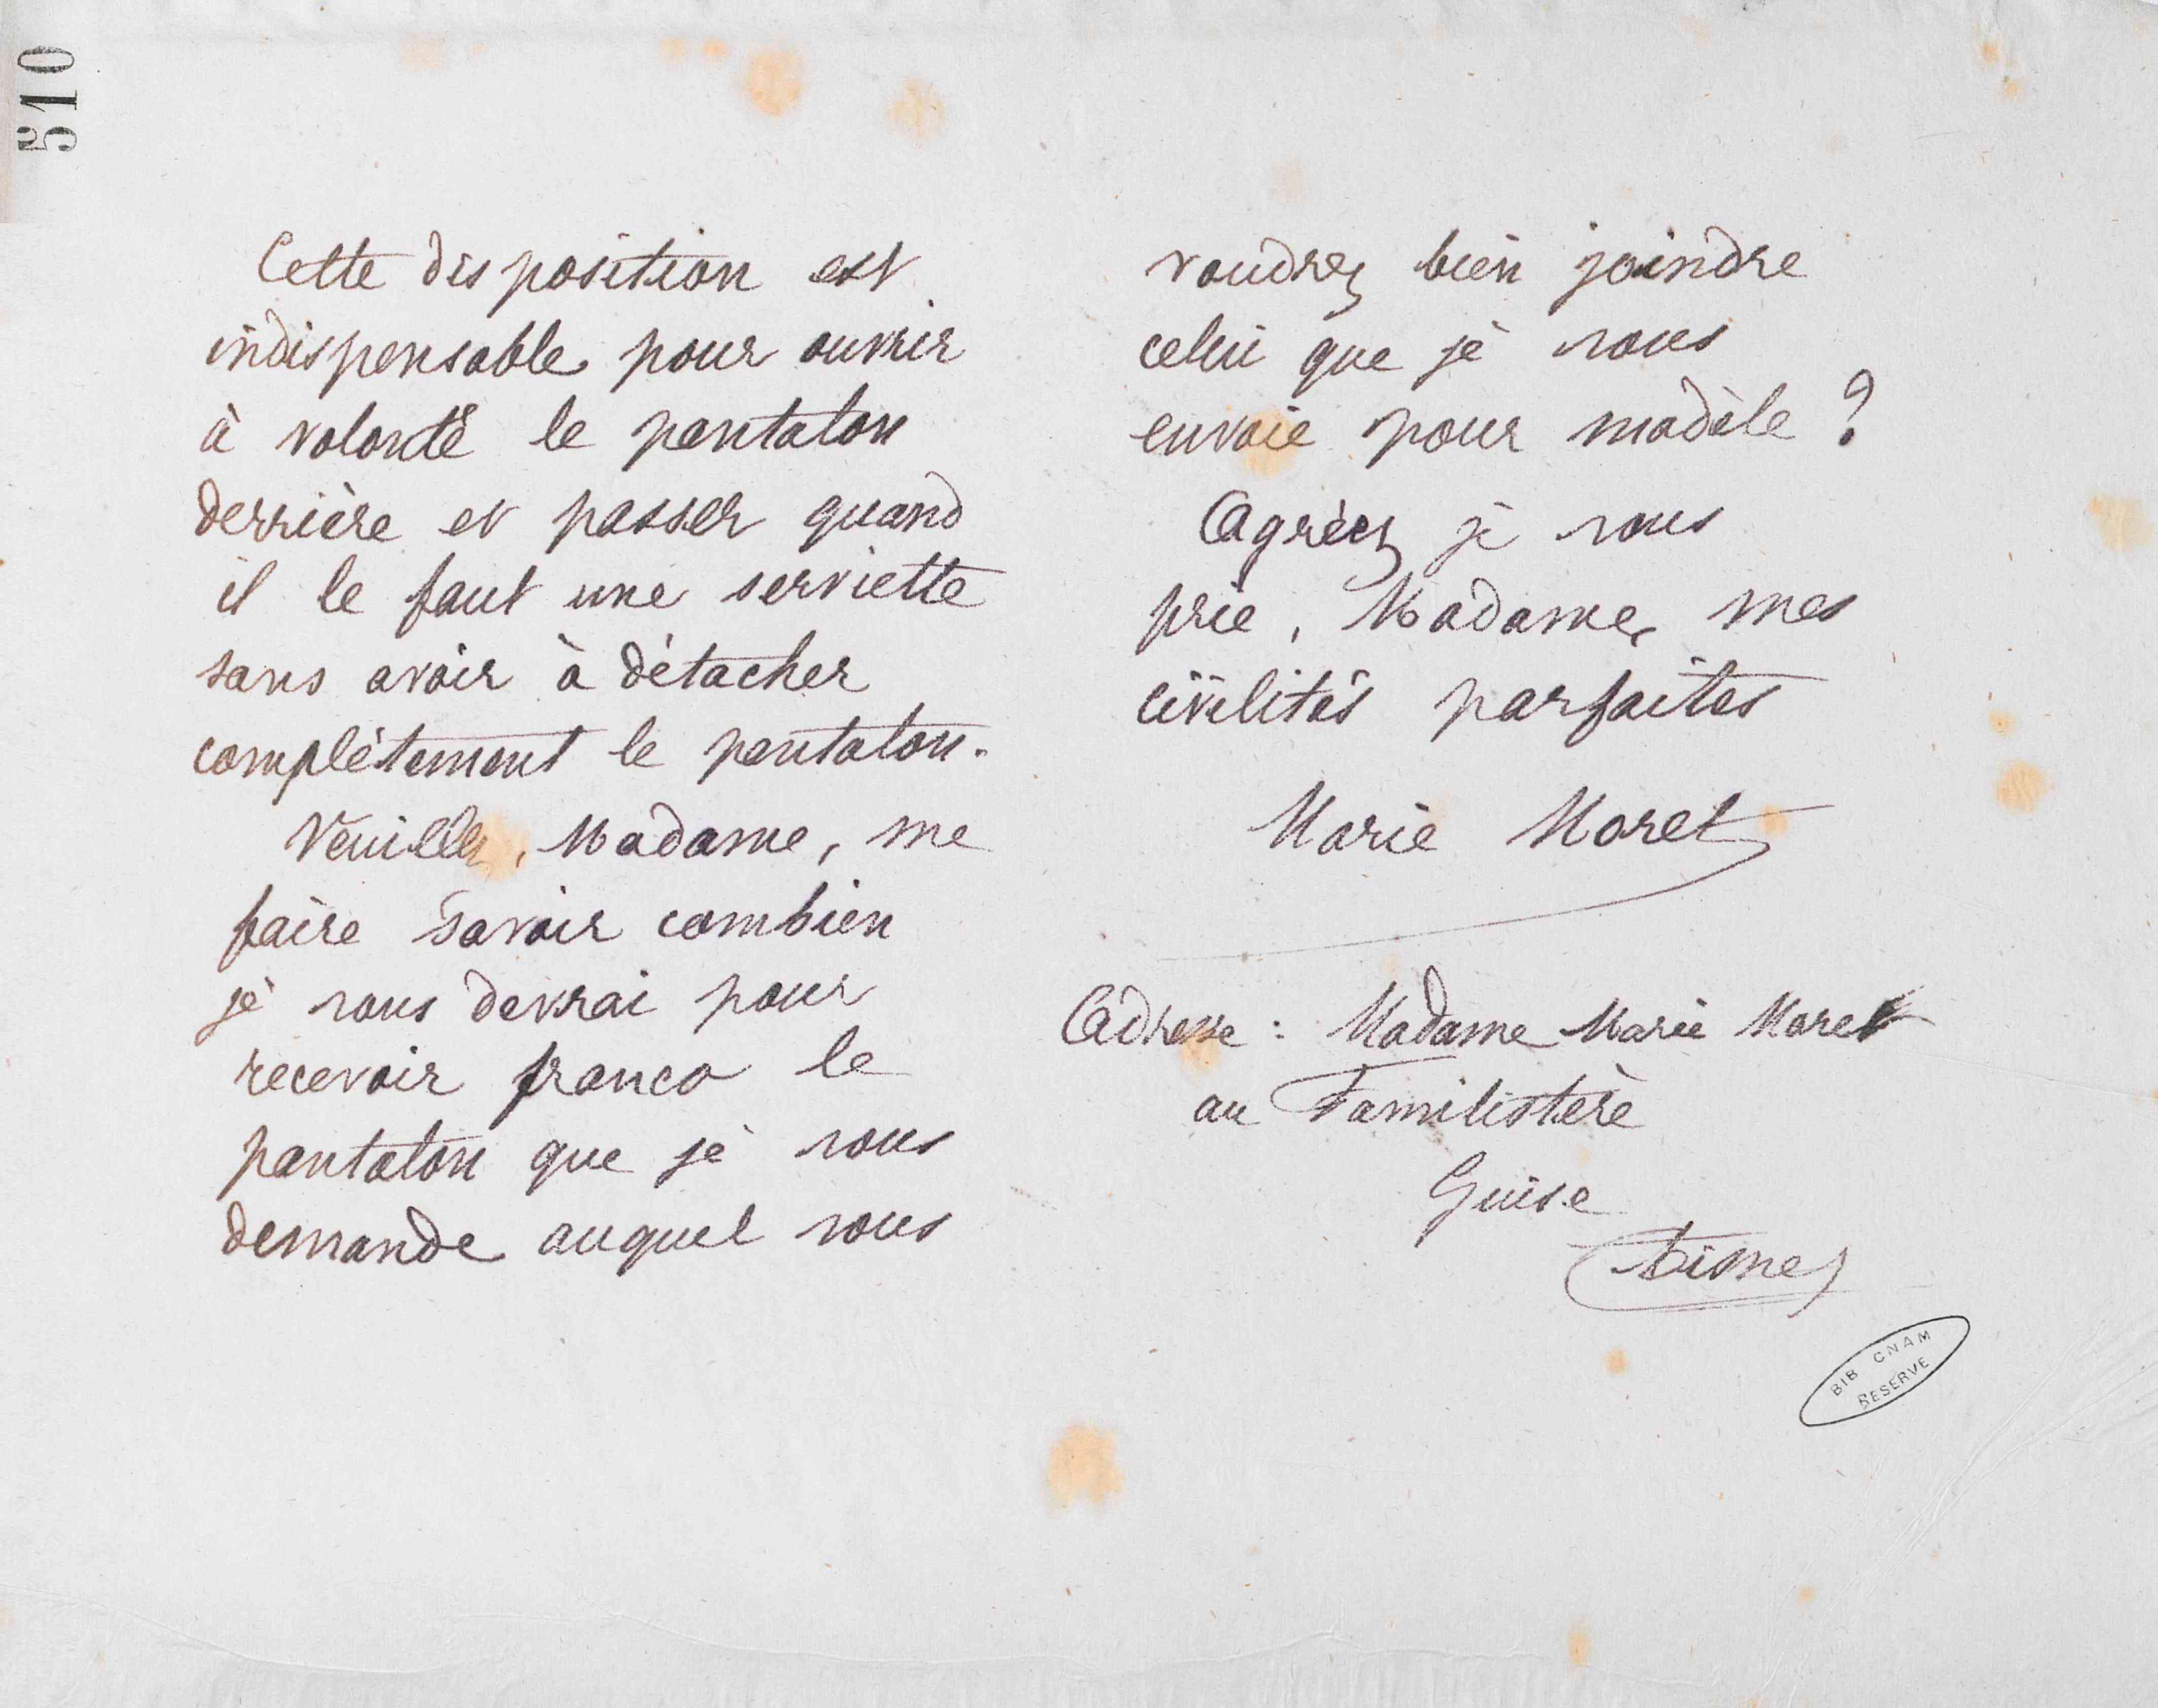 510
Cette disposition est
indispensable pour ouvrir
à volonté le pantalon
derrière et passer quand
il le faut une serviette
sans avoir à détacher
complètement le pantalon.
Veuillez, Madame, me
faire savoir combien
je vous devrai pour
recevoir franco le
pantalon que je vous
demande auquel vous
voudrez bien joindre
celui que je vous
envoie pour modèle ?
Agréez je vous
prie, Madame, mes
civilités parfaites
Marie Moret
Adresse : Madame Marie Moret
au Familistère
Guise
Aisne
BIB CNAM
RESERVE